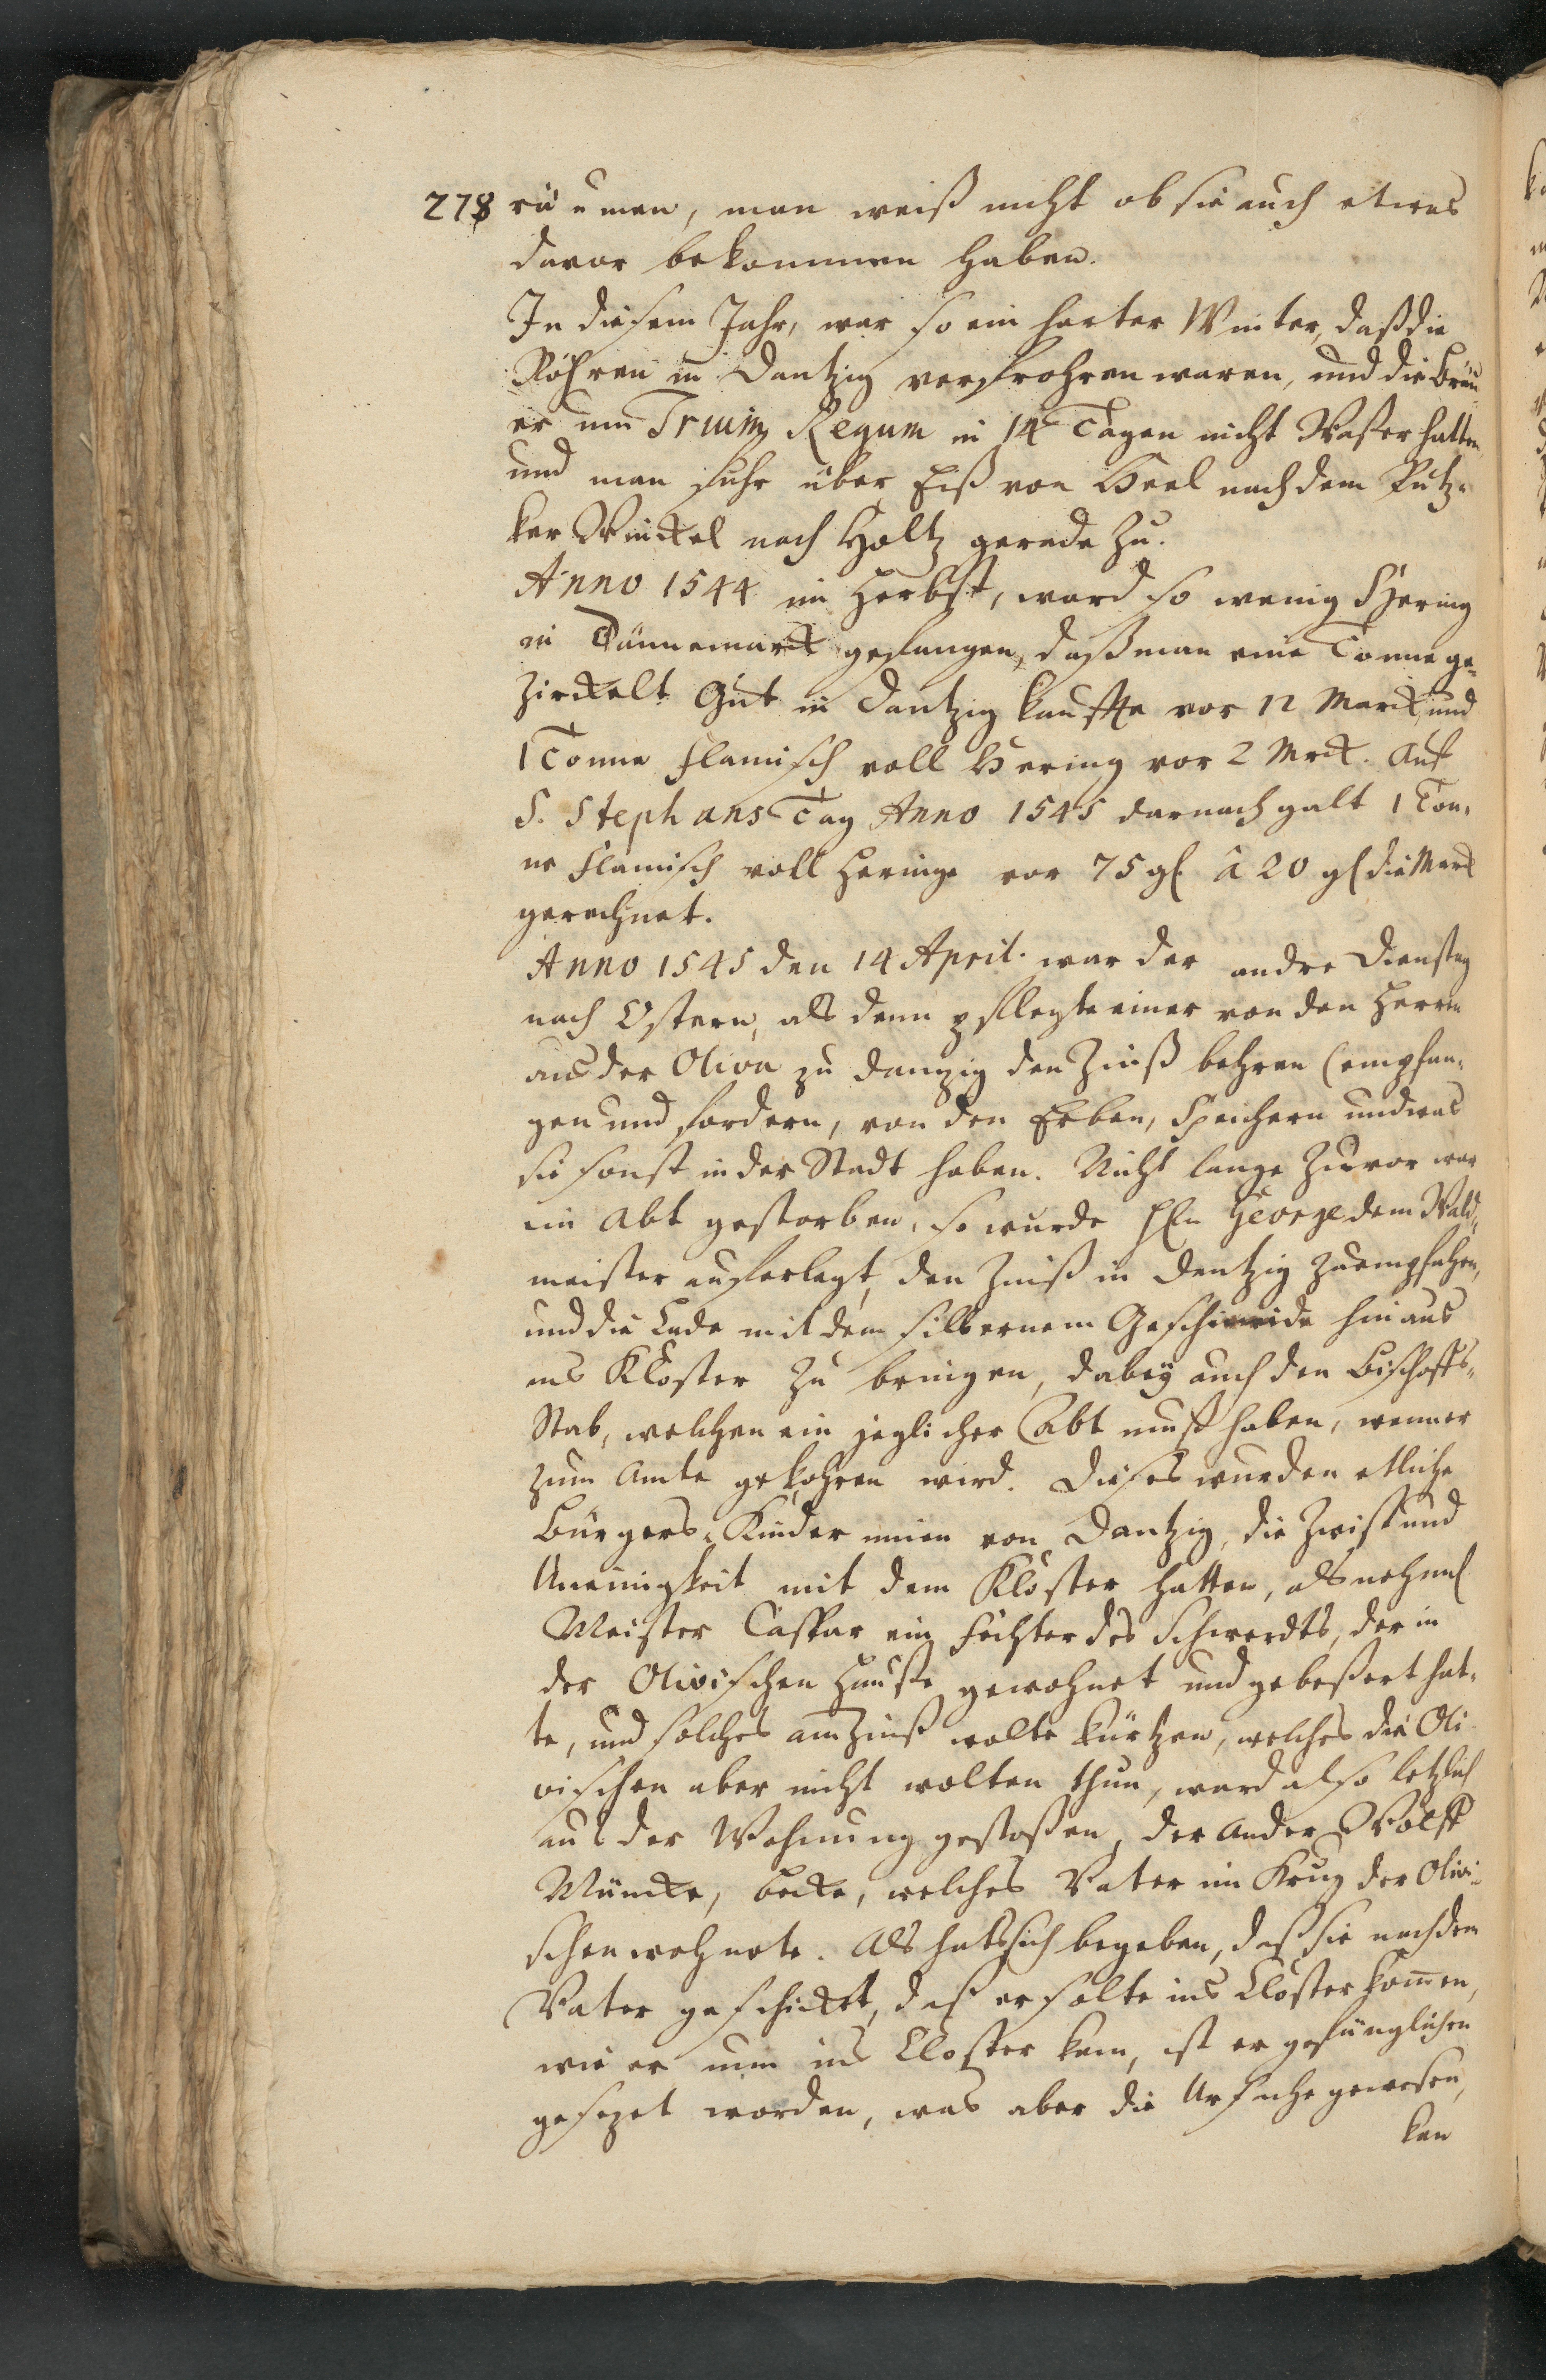 278 räumen, man weiß nicht ob sie auch etwas
davor bekommen haben.
In diesem Jahr, war so ein harter Winter, daß die
Röhren in Dantzig verfrohren waren, und die Bräu¬
er um Trium Regum in 14 Tagen nicht Waßer hatten
und man fuhr über Eiß von Heel nach dem Putz¬
ker Winckel nach Holtz gerade zu.
Anno 1544 im Herbst, ward so wenig Hering
in Dännemarck gefangen, daß man eine Tonne ge¬
zirckelt Gut in Dantzig kauffte vor 12 Marck und
1 Tonne flämisch voll Hering vor 2 Mrck. Auf
S. Stephans Tag Anno 1545 darnach galt 1 Ton¬
ne flämisch voll Heringe vor 75 gl. â 20 gl die Marck
gerechnet.
Anno 1545 den 14 April. war der andre Dienstag
nach Ostern, als denn pflegte einer von den Herren
aus der Oliva zu Danzig den Zinß behren (empfan¬
gen und fordern, von den Erben, Speichern und was
sie sonst in der Stadt haben. Nicht lange zuvor war
ein Abt gestorben, so wurde HEn George dem Wald¬
meister auferlegt, den Zinß in Dantzig zu empfahen,
und die Lade mit dem silbernem Geschmeide hinaus
ins Kloster zu bringen, dabey auch den Bischoffs¬
Stab, welchen ein jeglicher Abt muß haben, wenn er
zum Amte gekohren wird. Dieses wurden etliche
Bürgers-Kinder innen von Dantzig, die Zwist und
Uneinigkeit mit dem Kloster hatten, als nehml
Meister Caspar ein Fechter des Schwerdts, der in
der Olivischen Hause gewohnet und gebeßert hat¬
te, und solches am Zinß wolte kürtzen, welches die Oli
vischen aber nicht wolten thun, ward also letzlich
aus der Wohnung gestoßen, der ander Wolff
Müncke, Becke, welches Vater im Krug der Olivi¬
schen wohnete. Als hats sich begeben, daß sie nach dem
Vater geschickt, daß er solte ins Closter kommen,
wie er nun ins Closter kam, ist er gefänglichen
gesezet worden, was aber die Ursache gewesen,
kan